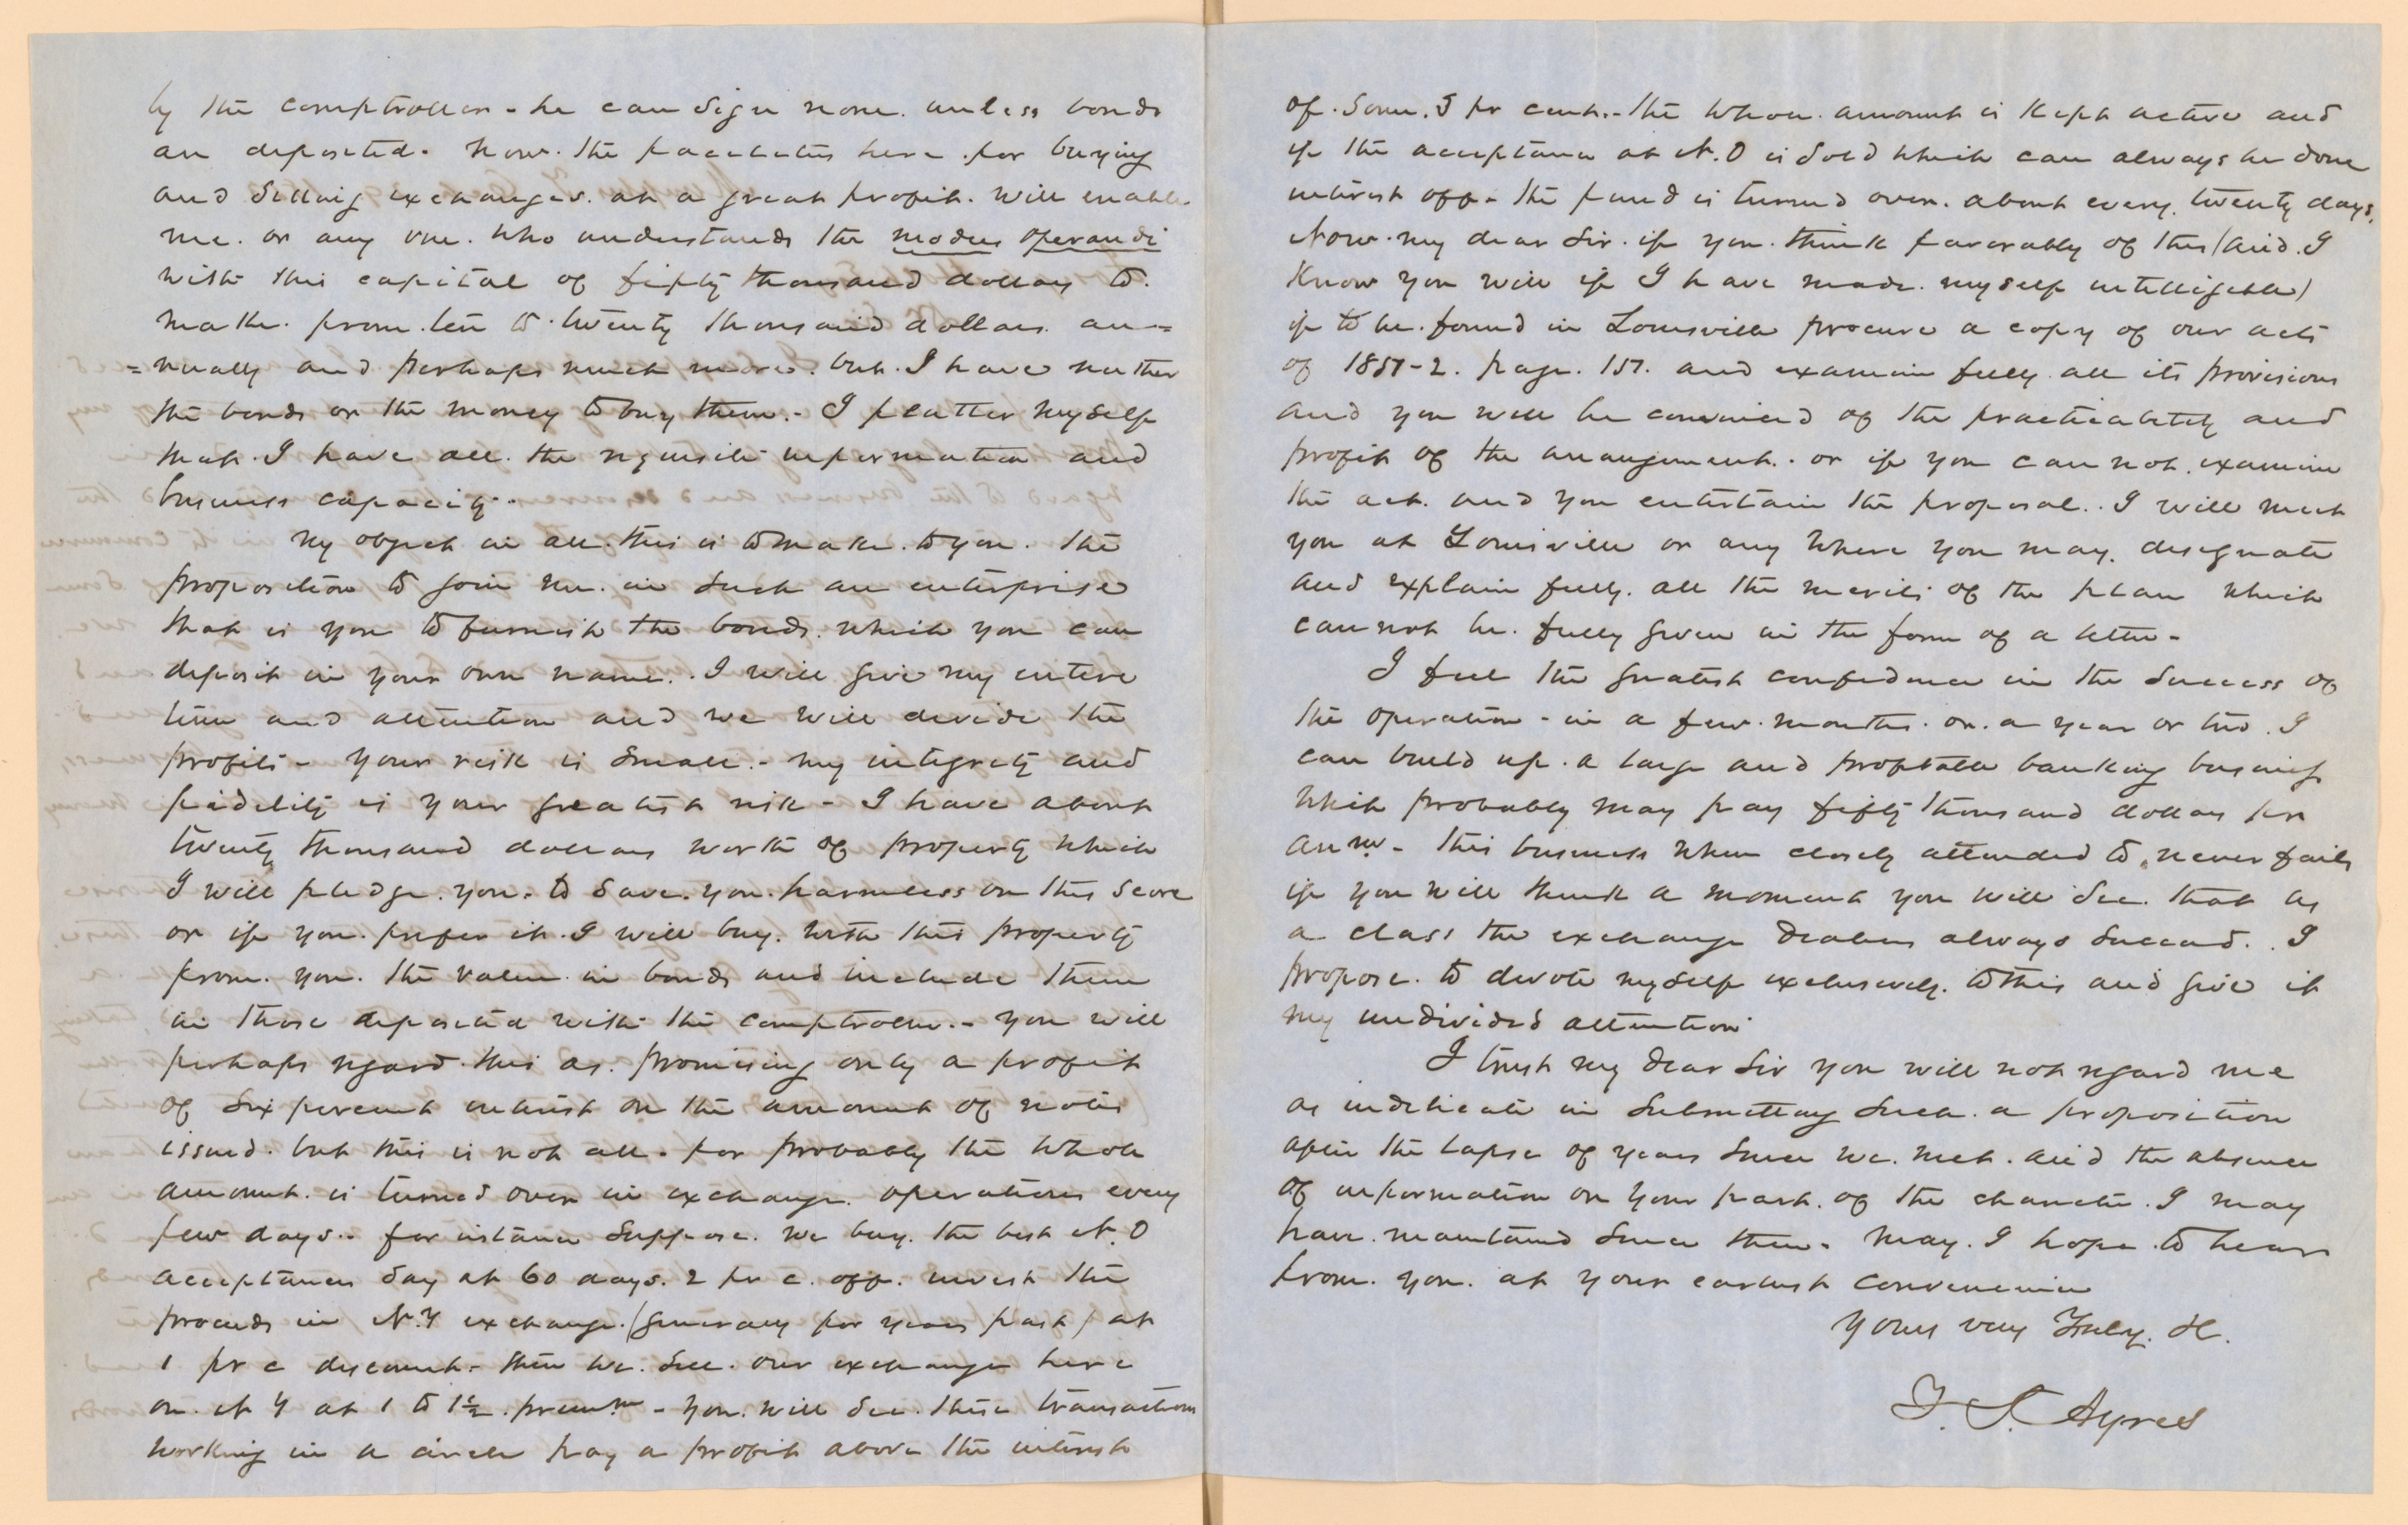 by the comptroller - he can sign none. unless bonds
are deposited. Now. the facilities here. for buying
and selling exchanges. at a great profit. will enable
me. or any one. who understands the modus operandi
with this capital of fifty thousand dollars to.
make. from. ten to twenty thousand dollars. an=
=nually and perhaps much more. but. I have neither
the bonds or the money to buy them. - I flatter myself
that. I have all. the requisite information and
business capacity.
My object in all. this is to make. to you. the
proposition to join me. in such an enterprise
that is you to furnish the bonds. which you can
deposit in your own name. . I will give my entire
time and attention and we will divide the
profits - your risk is small. - my integrity and
fidelity is your greatest risk - I have about
twenty thousand dollars worth of property which
I will pledge. you. to save. you. harmless on this score
or if you. prefer it. I will buy. with this property
from. you. the value. in bonds and include them
in those deposited with the comptroller. - you will
perhaps regard. this as. promising only a profit
of six percent interest on the amount of notes
issued. but this is not all. for probably the whole
amount. is turned over in exchange. operations every
few days. . for instance suppose. we buy. the best N. O
acceptances say at 60 days. 2 pr c. off. invest the
proceeds in N. Y exchange. (generally for years past) at
1 pr c discount. then we. sell. our exchange here
on. N Y at 1 to 1½. premm - you. will see. these transactions
working in a circle pay a profit above the interest
of. some. 5 pr cent. - the whole. amount is kept active and
if the acceptance at N. O is sold which can always be done
interest off - the fund is turned over. about every. twenty days.
Now. my dear Sir. if you. think favorably of this (and. I
know you will if I have made. myself intelligible)
if to be. found in Louisville procure a copy of our acts
of 1851-2. page. 157. and examine fully all its provisions
and you will be convinced of the practicability and
profit of the arrangement. . or if you can not. examine
the act. and you entertain the proposal. . I will meet
you at Louisville or any where you may. designate
and explain fully. all the merits of the plan which
can not be. fully given in the form of a letter -
I feel the greatest confidence in the success of
the operation - in a few. months. or. a year or two. I
can build up. a large and profitable banking business
which probably may pay fifty thousand dollars per
annm - this business when closely attended to, never fails
if you will think a moment you will see. that as
a class the exchange dealers always succeed. . I
propose. to devote myself exclusively. to this and give it
my undivided attention
I trust my dear Sir you will not regard me
as indelicate in submitting such. a proposition
after the lapse of years since we. met. and the absence
of information on your part. of the character. I may
have. maintained since then. May. I hope. to hear
from. you. at your earliest convenience
Yours very Truly. &c.
T. S. Ayres